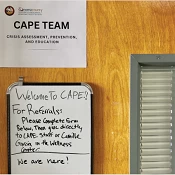 CAPE TEAM
CRISIS ASSESSMENT, PREVENTION,
AND EDUCATION
Welcome To CAPE!
For Referrals:
Please Complete form
Below, Then give directly
to CAPE Staff or Camille
in the Wellness
Center
We are here!